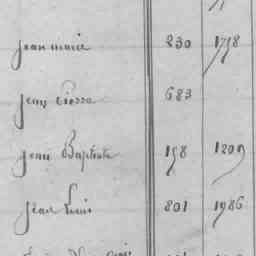 Jean marie 230 1718
Jean Pierre 683
Jean Baptiste 198 1209
Jean Louis 801 1986